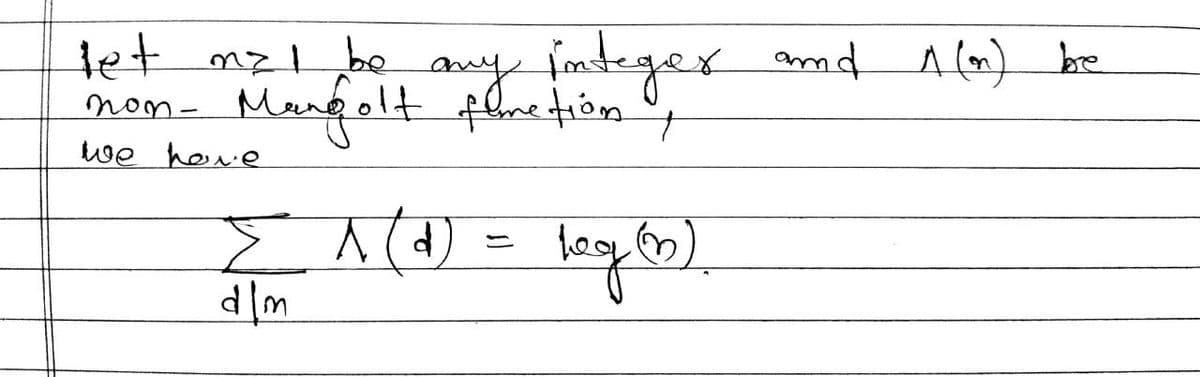 let n≥1 be any integer and Λ(n) be
non- Mangolt function,
we have
∑ Λ(d) = log(n).
d|n